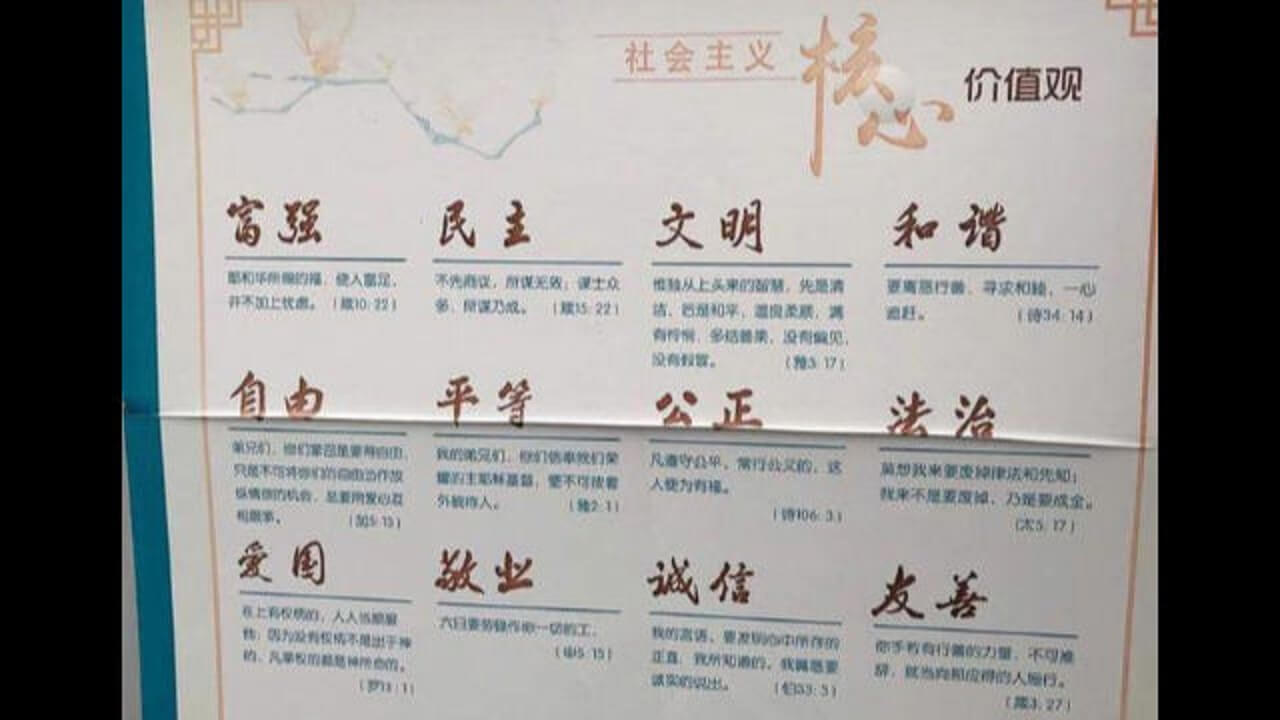 社会主义核心价值观
富强
耶和华所赐的福，使人富足，
并不加上忧虑。（箴10:22）
民主
不先商议，所谋无效；谋士众
多，所谋乃成。（箴15:22）
文明
惟独从上头来的智慧，先是清
洁，后是和平，温良柔顺，满
有怜悯，多结善果，没有偏见，
没有假冒。（雅3:17）
和谐
要离恶行善，寻求和睦，一心
追赶。（诗34:14）
自由
弟兄们，你们蒙召是要得自由，
只是不可将你们的自由当作放
纵情欲的机会，总要用爱心互
相服事。（加5:13）
平等
我的弟兄们，你们信奉我们荣
耀的主耶稣基督，便不可按着
外貌待人。（雅2:1）
公正
凡遵守公平、常行公义的，这
人便为有福。
（诗106:3）
法治
莫想我来要废掉律法和先知；
我来不是要废掉，乃是要成全。
（太5:17）
爱国
在上有权柄的，人人当顺服
他；因为没有权柄不是出于神
的，凡掌权的都是神所命的。
（罗13:1）
敬业
六日要劳碌作你一切的工，
（申5:13）
诚信
我的言语，要发明心中所存的
正直；我所知道的，我嘴唇要
诚实的说出。（伯33:3）
友善
你手若有行善的力量，不可推
辞，就当向那应得的人施行。
（箴3:27）